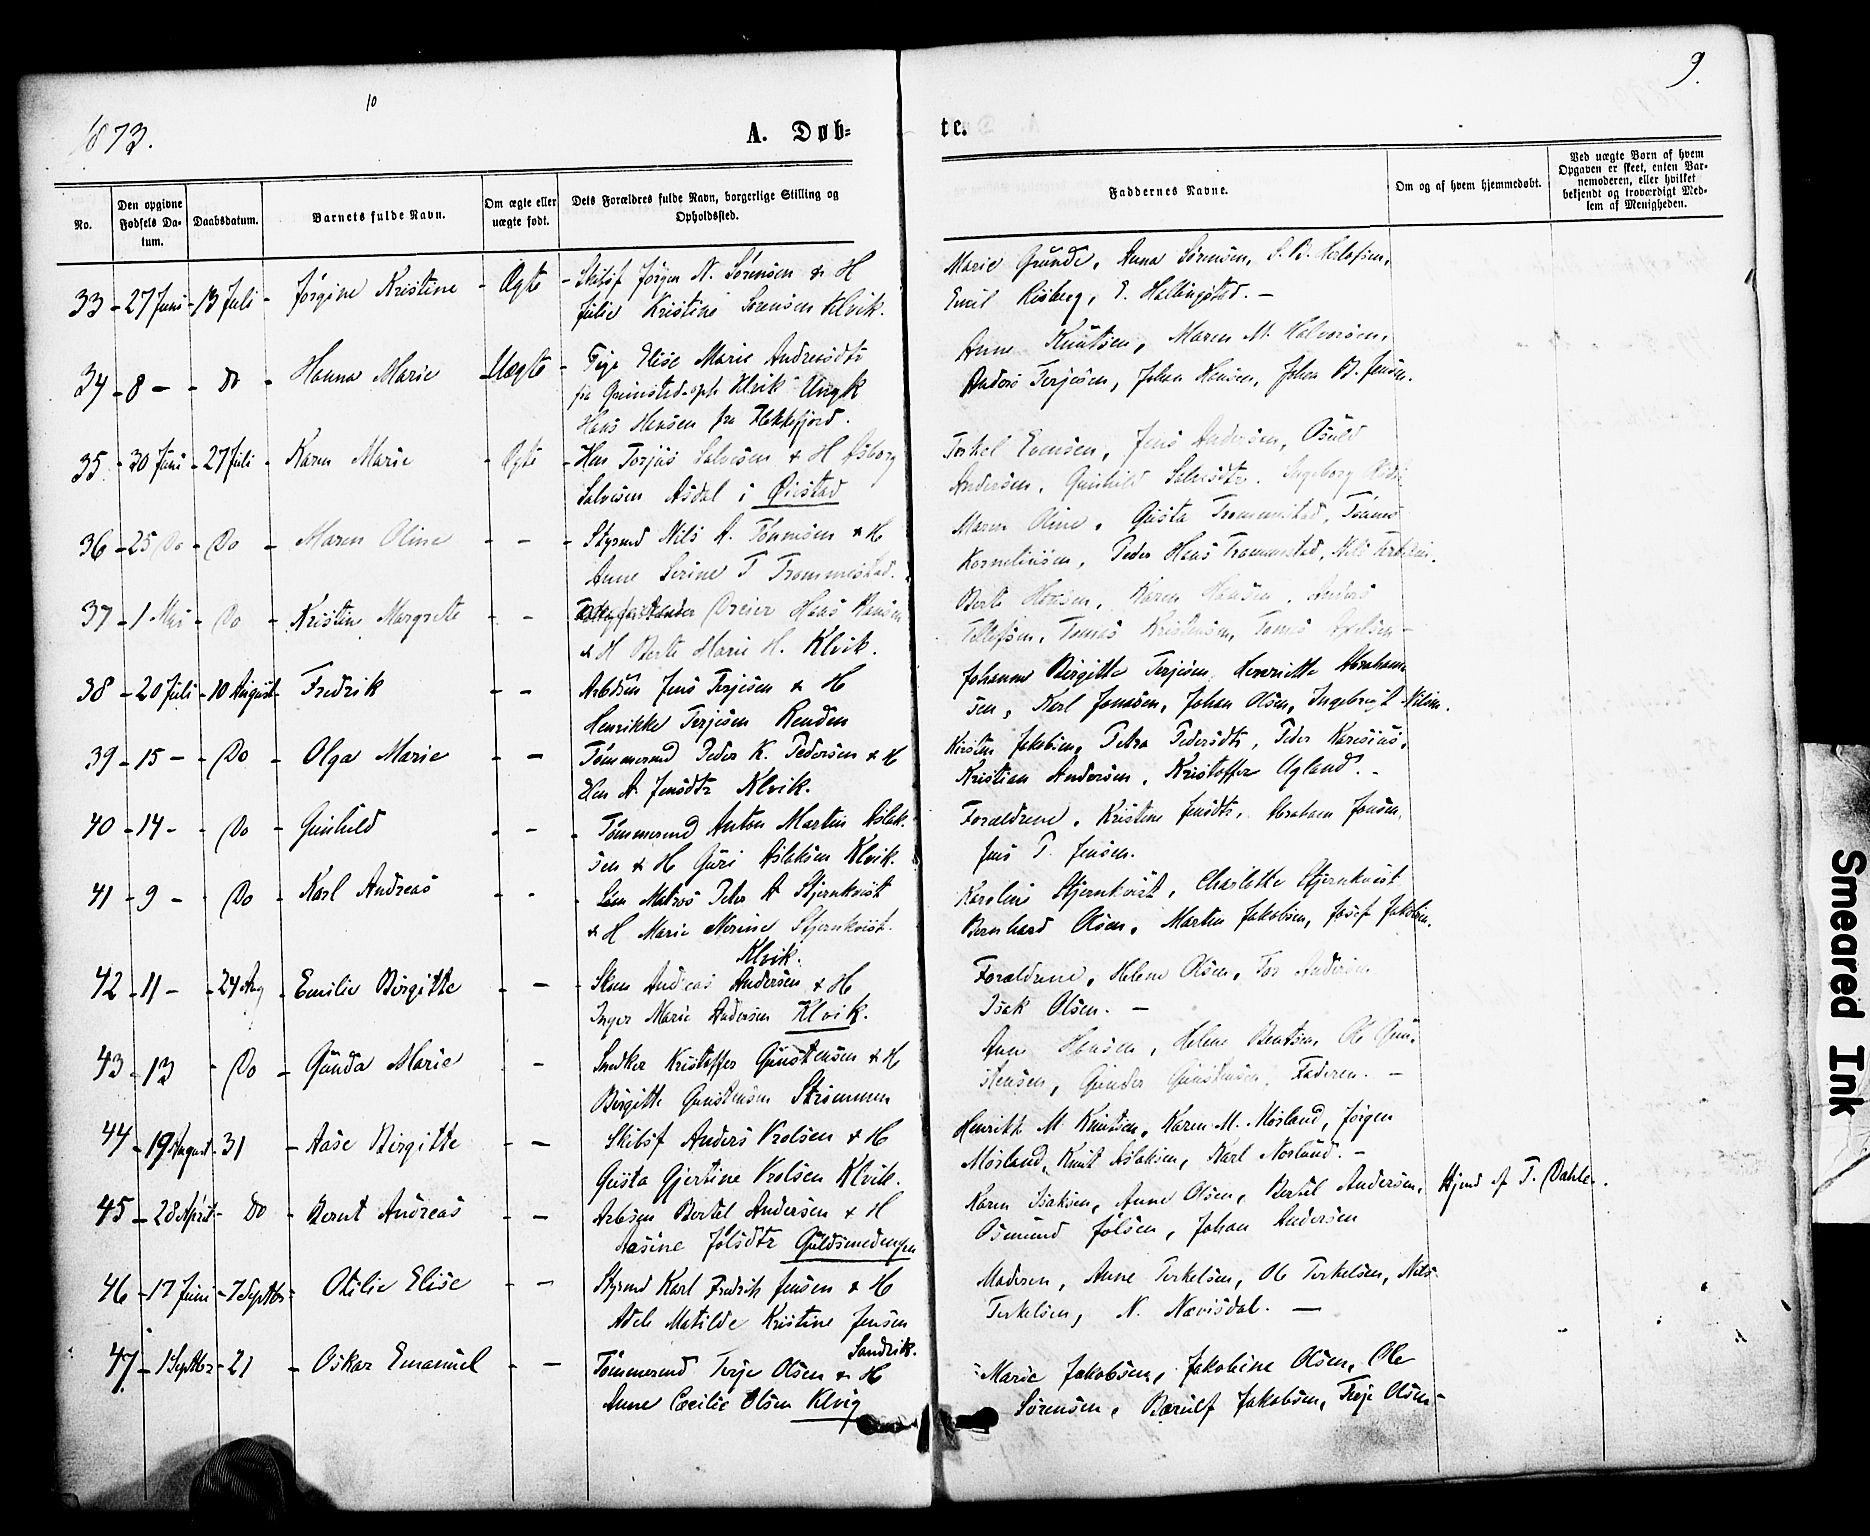 10
1873.
A. Døb=
te.
9.
No.
Den opgivne Fødsels Da-tum.
Daabsdatum.
Barnets fulde Navn.
Om ægte eller uægte født.
Dets Forældres fulde Navn, borgerlige Stilling og Opholdssted.
Faddernes Navne.
Om og af hvem hjemmedøbt.
Ved uægte Børn af hvem Opgaven er skeet, enten Bar-nemoderen, eller hvilket bekjendt og troværdigt Med-lem af Menigheden.
33 - 27 Juni - 13 Juli - Jørgine Kristine - Ægte - Skibsf Jørgen N. Sørensen & H
Julie Kristine Sørensen Klvik.
Marie Grunde, Anna Sørensen, S. B.
Emil Risberg, E. Hallingstad. -
34 - 8 - - Do - Hanna Marie - Uægte - Pige Elise Marie Andreasdtr
fra Grimstad oph Klvik Ungk
Hans Hansen fra Flekkefjord.
Anne Knutsen, Maren M. Halvorsen,
Anders Terjesen, Johan Hansen, Johan B. Jensen.
35 - 30 Juni - 27 Juli - Karen Marie - Ægte - Hus Torjus Salvesen & H Asborg
Salvesen Asdal i Øiestad
Torkel Evensen, Jens Andersen, Osuld
Andersen, Gunhild Salvesdtr. Ingeborg
36 - 25 Do - Do - Maren Oline - - - Styrmd Nils A. Tønnesen & H
Anne Serine T Trommestad.
Maren Oline, Gusta Trommestad, Tomas
Korneliusen, Peder Hans Trommestad, Nils
37 - 1 Mai - Do - Kristine Margrete - - Dreier Hans Hansen
& H Berte Marie H. Klvik.
Berte Hansen, Karen Hansen, Anders
Tellefsen, Tomas Kristensen, Tomas
38 - 20 Juli - 10 August - Fredrik - - Arbsm Jens Terjesen & H
Henrikke Terjesen Renden
Johanne Birgitte Terjesen, Henriette Abraham-
sen, Karl Jonasen, Johan Olsen, Ingebregt Nilsen.
39 - 15 - - Do - Olga Marie - - Tømmermd Peder K. Pedersen & H
A. Jensdtr Klvik.
Kirsten Jakobsen, Petra Pedersdtr, Peder Karesius,
Kristian Andersen, Kristoffer Ugland. -
40 - 14 - - Do - Gunhild - - Tømmermd Anton Martin Aslak-
sen & H Guri Aslaksen Klvik.
Forældrene, Kristine Jensdtr, Abraham Jonsen,
Jens T. Jensen.
41 - 9 - - Do - Karl Andreas - - Matros Peter A Stjernkvist
& H Marie Nerine Stjernkvist.
Klvik.
Karoline Stjernkvist, Charlotte Stjernkvist
Bernhard Olsen, Martin Jakobsen, Josef Jakobsen.
42 - 11 - - 24 Aug - Emilie Birgitte - - Andreas Andersen & H
Inger Marie Andersen Klvik.
Forældrene, Helene Olsen, Tor Andersen
Isak Olsen. -
43 - 13 - Do - Gunda Marie - Snedker Kristoffer Gunstensen & H
Birgitte Gunstensen Strømmen
Anne Hansen, Helene Bentsen, Ole Gun-
stensen, Gunder Gunstensen, Faderen. -
44 - 19 August - 31 - Aase Birgitte - - Skibsf Anders Vrolsen & H
Gusta Gjertine Vrolsen Klvik.
Henrikke M. Knutsen, Karen M. Mørland, Jørgen
Mørland, Knut Aslaksen, Karl Norlund. -
45 - 28 April - Do - Bernt Andreas - - Arbsm Bertel Andersen & H
Aasine Jølsdtr Guldsmedengen
Karen Isaksen, Anne Olsen, Bertel Andersen,
Osmund Jølsen, Johan Andersen
Hjmd af T. Dahle.
46 - 17 Juni - 7 Septbr - Otilie Elise - - Styrmd Karl Fredrik Jensen & H
Adele Matilde Kristine Jensen
Sandvik.
Moderen, Anne Terkelsen, Ole Terkelsen, Nils
Terkelsen, N. Nævisdal. -
47 - 1 Septbr - 21 - Oskar Emanuel - - Tømmermd Terje Olsen & H
Anne Cecilie Olsen Klvig
Marie Jakobsen, Jakobine Olsen, Ole
Sørensen, Bærulf Jakobsen, Terje Olsen -
Smeared Ink